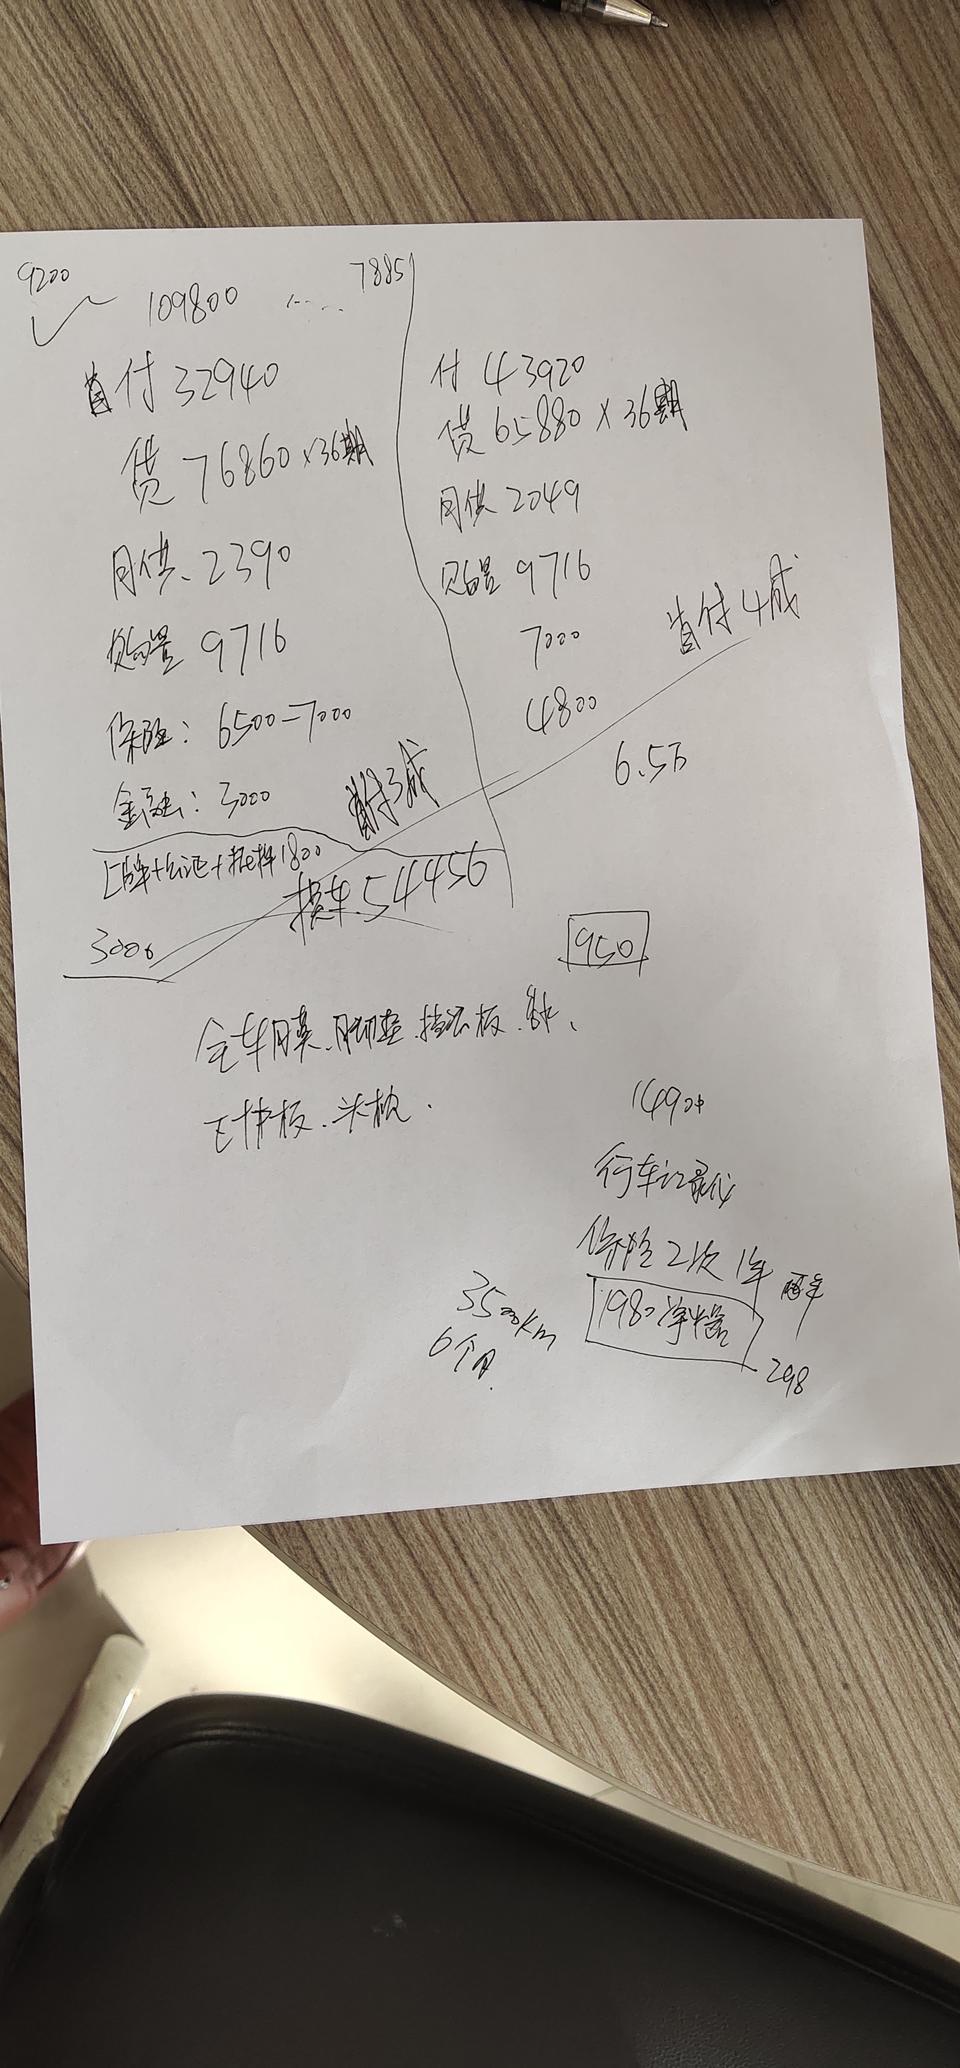 9200
109800
7885
首付 32940
贷 76860 x36期
月供、2390
购置 9716
保险：6500-7000
金融：3000
首付3成
上牌+公证+抵押1800
3000
提车.54456
付 43920
贷 65880 x36期
月供 2049
购置 9716
7000
4800
首付4成
6.5万
950
全车膜.脚垫.挡泥板.
下护板.头枕.
行车记录仪
保险 2次 1年
3500km
6个月
1980
298